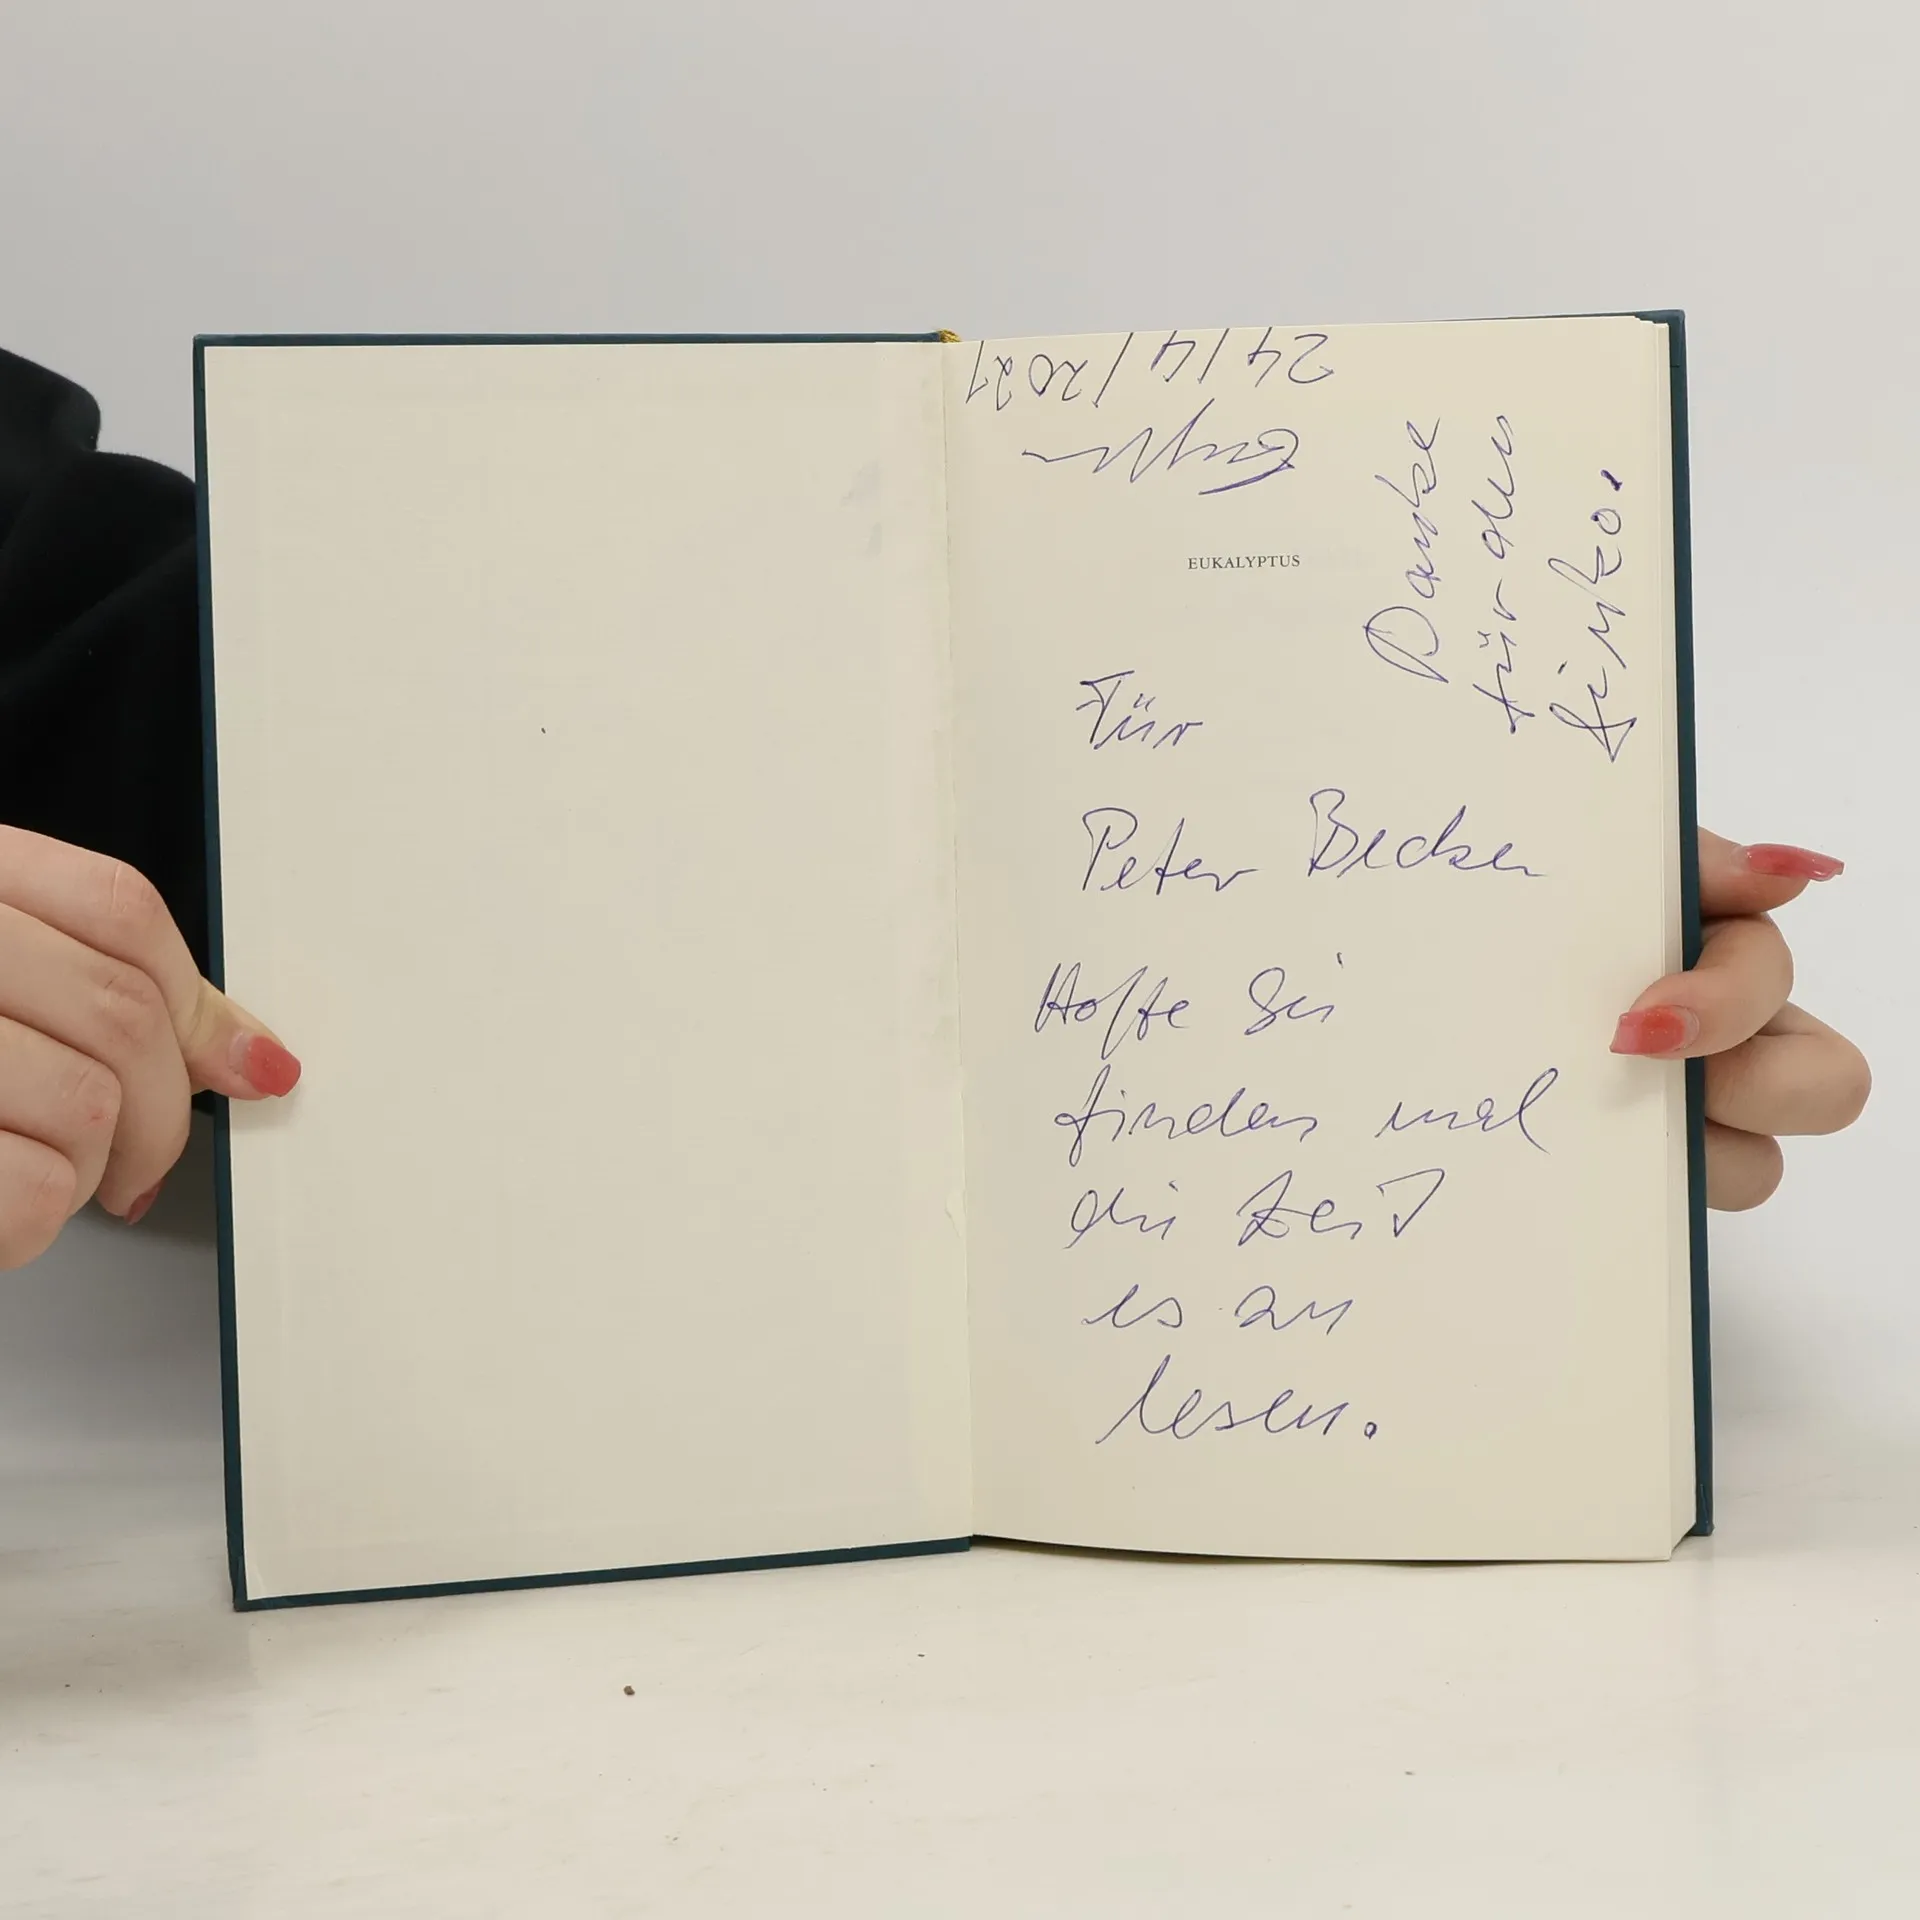 24/4/2021
EUKALYPTUS
Danke
für den
Für
Peter Becker
Hoffe Sie
finden mal
die Zeit
es zu
lesen.